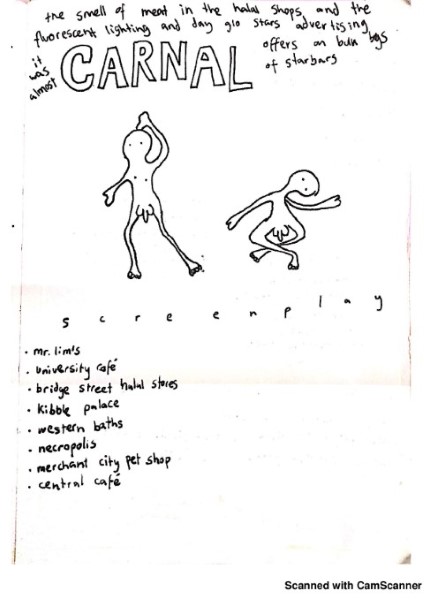 the smell of meat in the halal shops and the
fluorescent lighting and day glo stars advertising
offers on bulk bags
of starbars
it
was
almost
CARNAL
screenplay
· mr. lim's
· university café
· bridge street halal stores
· kibble palace
· western baths
· necropolis
· merchant city pet shop
· central café
Scanned with CamScanner